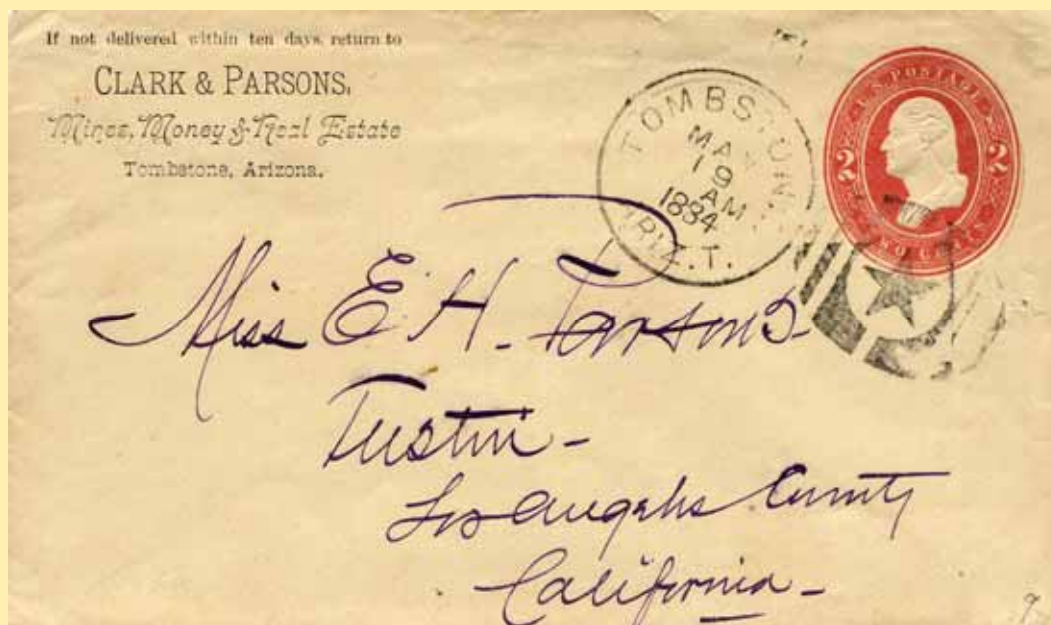 If not delivered within ten days, return to
CLARK & PARSONS,
Mines, Money & Real Estate
Tombstone, Arizona.
TOMBSTONE
MAY
19
AM
1884
ARIZ.T.
U.S. POSTAGE
2 2
TWO CENTS
Miss E. H. Parsons
Tustin -
Los Angeles County
California -